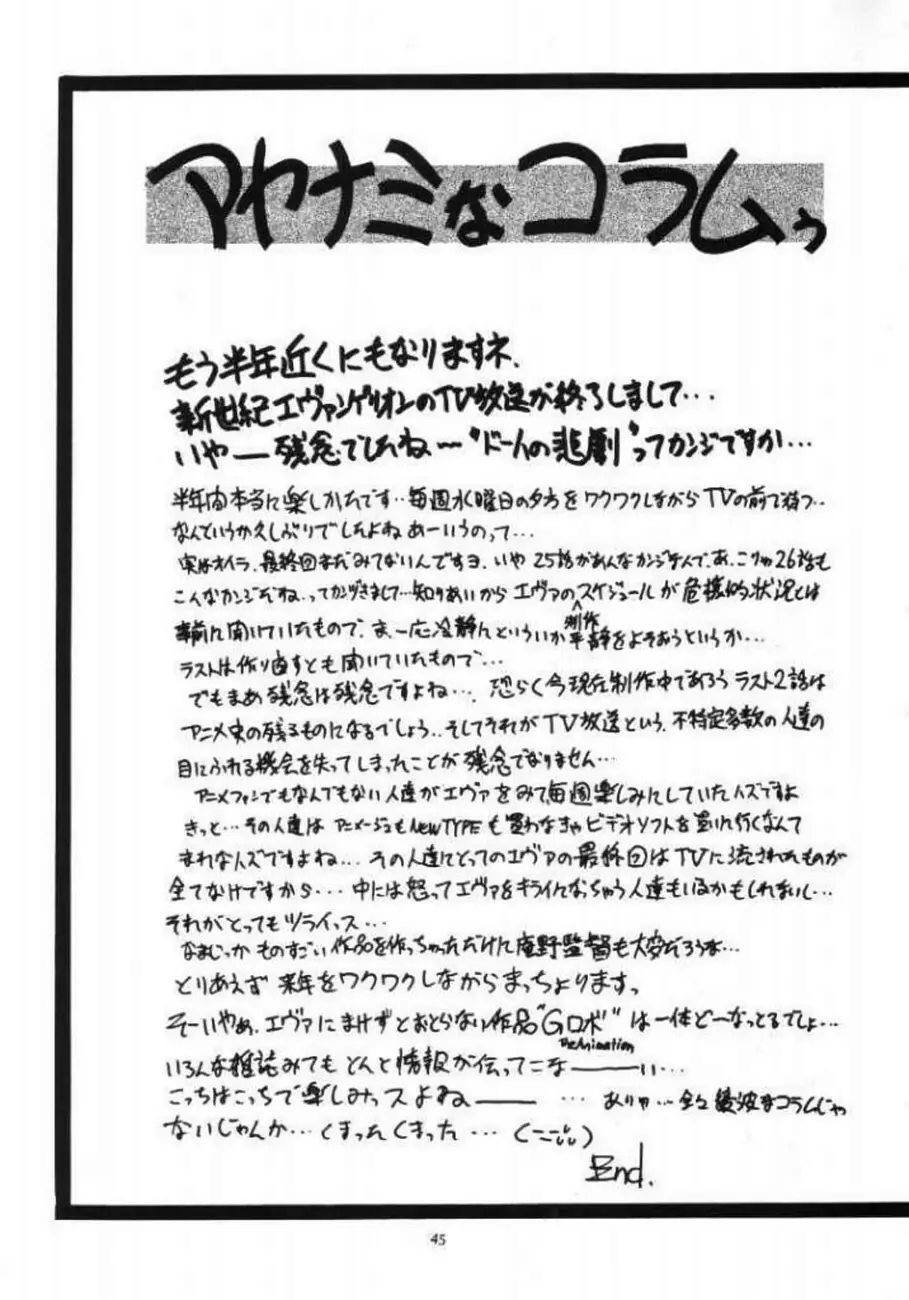 アヤナミなコラムぅ
もう半年近くにもなりますネ.
新世紀エヴァンゲリオンのTV放送が終了しまして…
いやー残念でしたね〜“ドー人の悲劇”ってカンジですか…
半年間本当に楽しかたです‥毎週水曜日の夕方をワクワクしながらTVの前で待つ‥
なんというか久しぶりでしたよねあーいうのって…
実はオイラ、最終回まだみてないんですヨ. いや25話があんなカンジなんで、あ、こりゃ26話も
こんなカンジだね、ってカンづきまして…知りあいからエヴァの制作スケジュールが危機的状況とは
事前に聞いていたもので、ま、一応冷静んといういか平静をよそおうというか…
ラストは作り直すとも聞いていたもので…
でもまぁ残念は残念ですよね…. 恐らく今現在制作中であろうラスト2話は
アニメ史の残るものになるでしょう‥そしてそれがTV放送という、不特定多数の人達の
目にふれる機会を失ってしまったことが残念でなりません…
アニメファンでもなんでもない人達がエヴァをみて毎週楽しみにしていたハズですよ
きっと…その人達はアニメージュもNEWTYPEも買わなきゃビデオソフトを買いに行くなんて
まれなハズですよね…その人達にとってのエヴァの最終回はTVに流されたものが
全てなけですから…中には怒ってエヴァをキライになっちゃう人達もいるかもしれないし…
それがとってもツライっス…
なまじっかものすごい作品を作っちゃっただけに庵野監督も大変だろうな…
とりあえず来年をワクワクしながらまっちょります。
そーいやぁ、エヴァにまけずとおとらない作品“Gロボ”は一体どーなっとるでしょ…
The Animation
いろんな雑誌みてもとんと情報が伝ってこなーーい…
こっちはこっちで楽しみっスよねーー … ありゃ…全々綾波なコラムじゃ
ないじゃんか…くまったくまった…(ーー;;)
End.
45